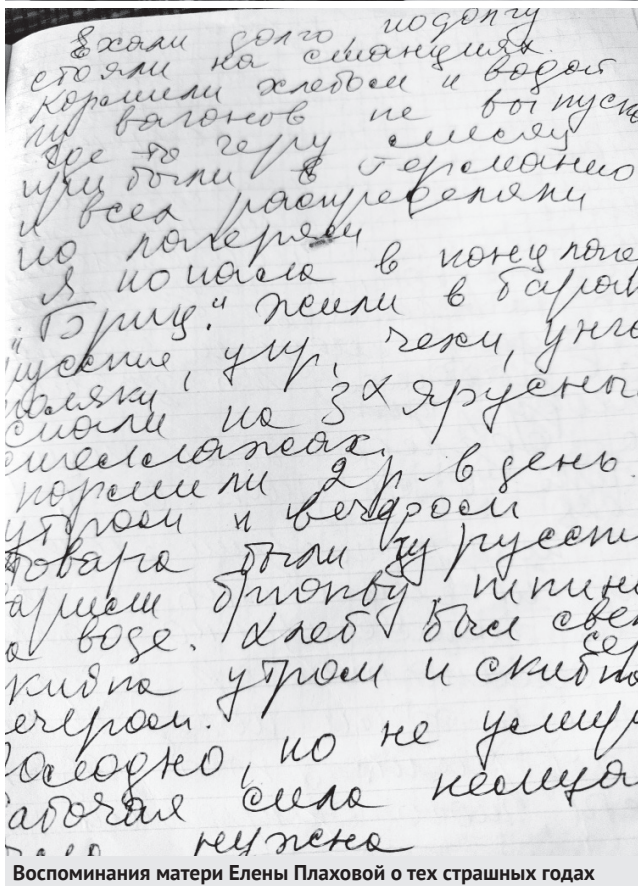 Ехали долго, подолгу
стояли на станциях.
кормили хлебом и водой
из вагонов не выпуск
где то через месяц
прибыли в Германию
и всех распределяли
по лагерям
Я попала в концлаге
"Бриц." жили в барак
русские, укр, чехи, унг
поляки,
спали на 3х ярусны
стеллажах.
кормили 2 р. в день.
утром и вечером
повара были из русски
варили брюкву, шпин
а воде. Хлеб был све
скибка утром и скибка
ечером.
олодно, но не умир
абочая сила немца
нужна
Воспоминания матери Елены Плаховой о тех страшных годах